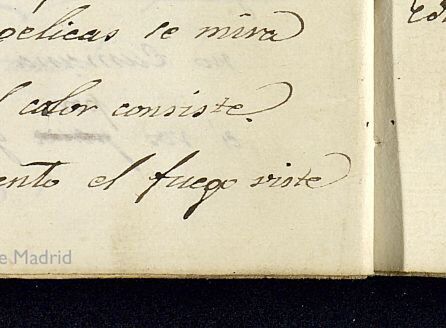 gelicas se mira
color consiste
ento el fuego viste
e Madrid